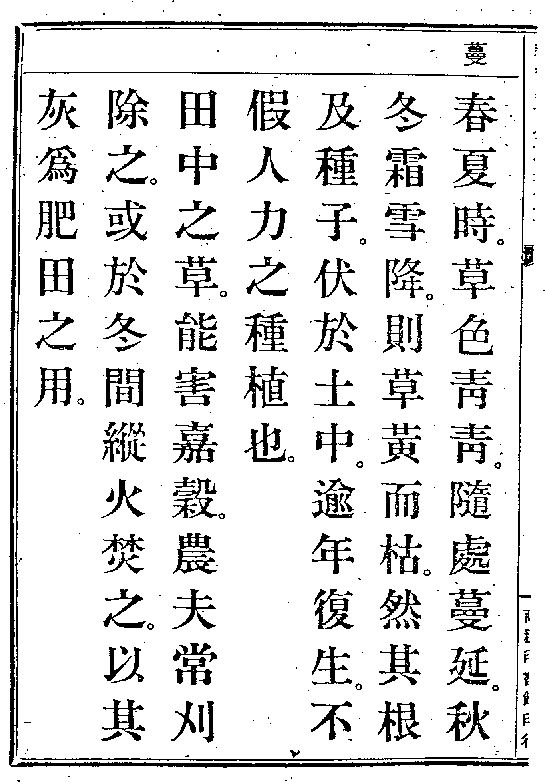 蔓
春夏時。草色靑靑。隨處蔓延。秋
冬霜雪降。則草黃而枯。然其根
及種子。伏於土中。逾年復生。不
假人力之種植也。
田中之草。能害嘉穀。農夫常刈
除之。或於冬間縱火焚之。以其
灰爲肥田之用。